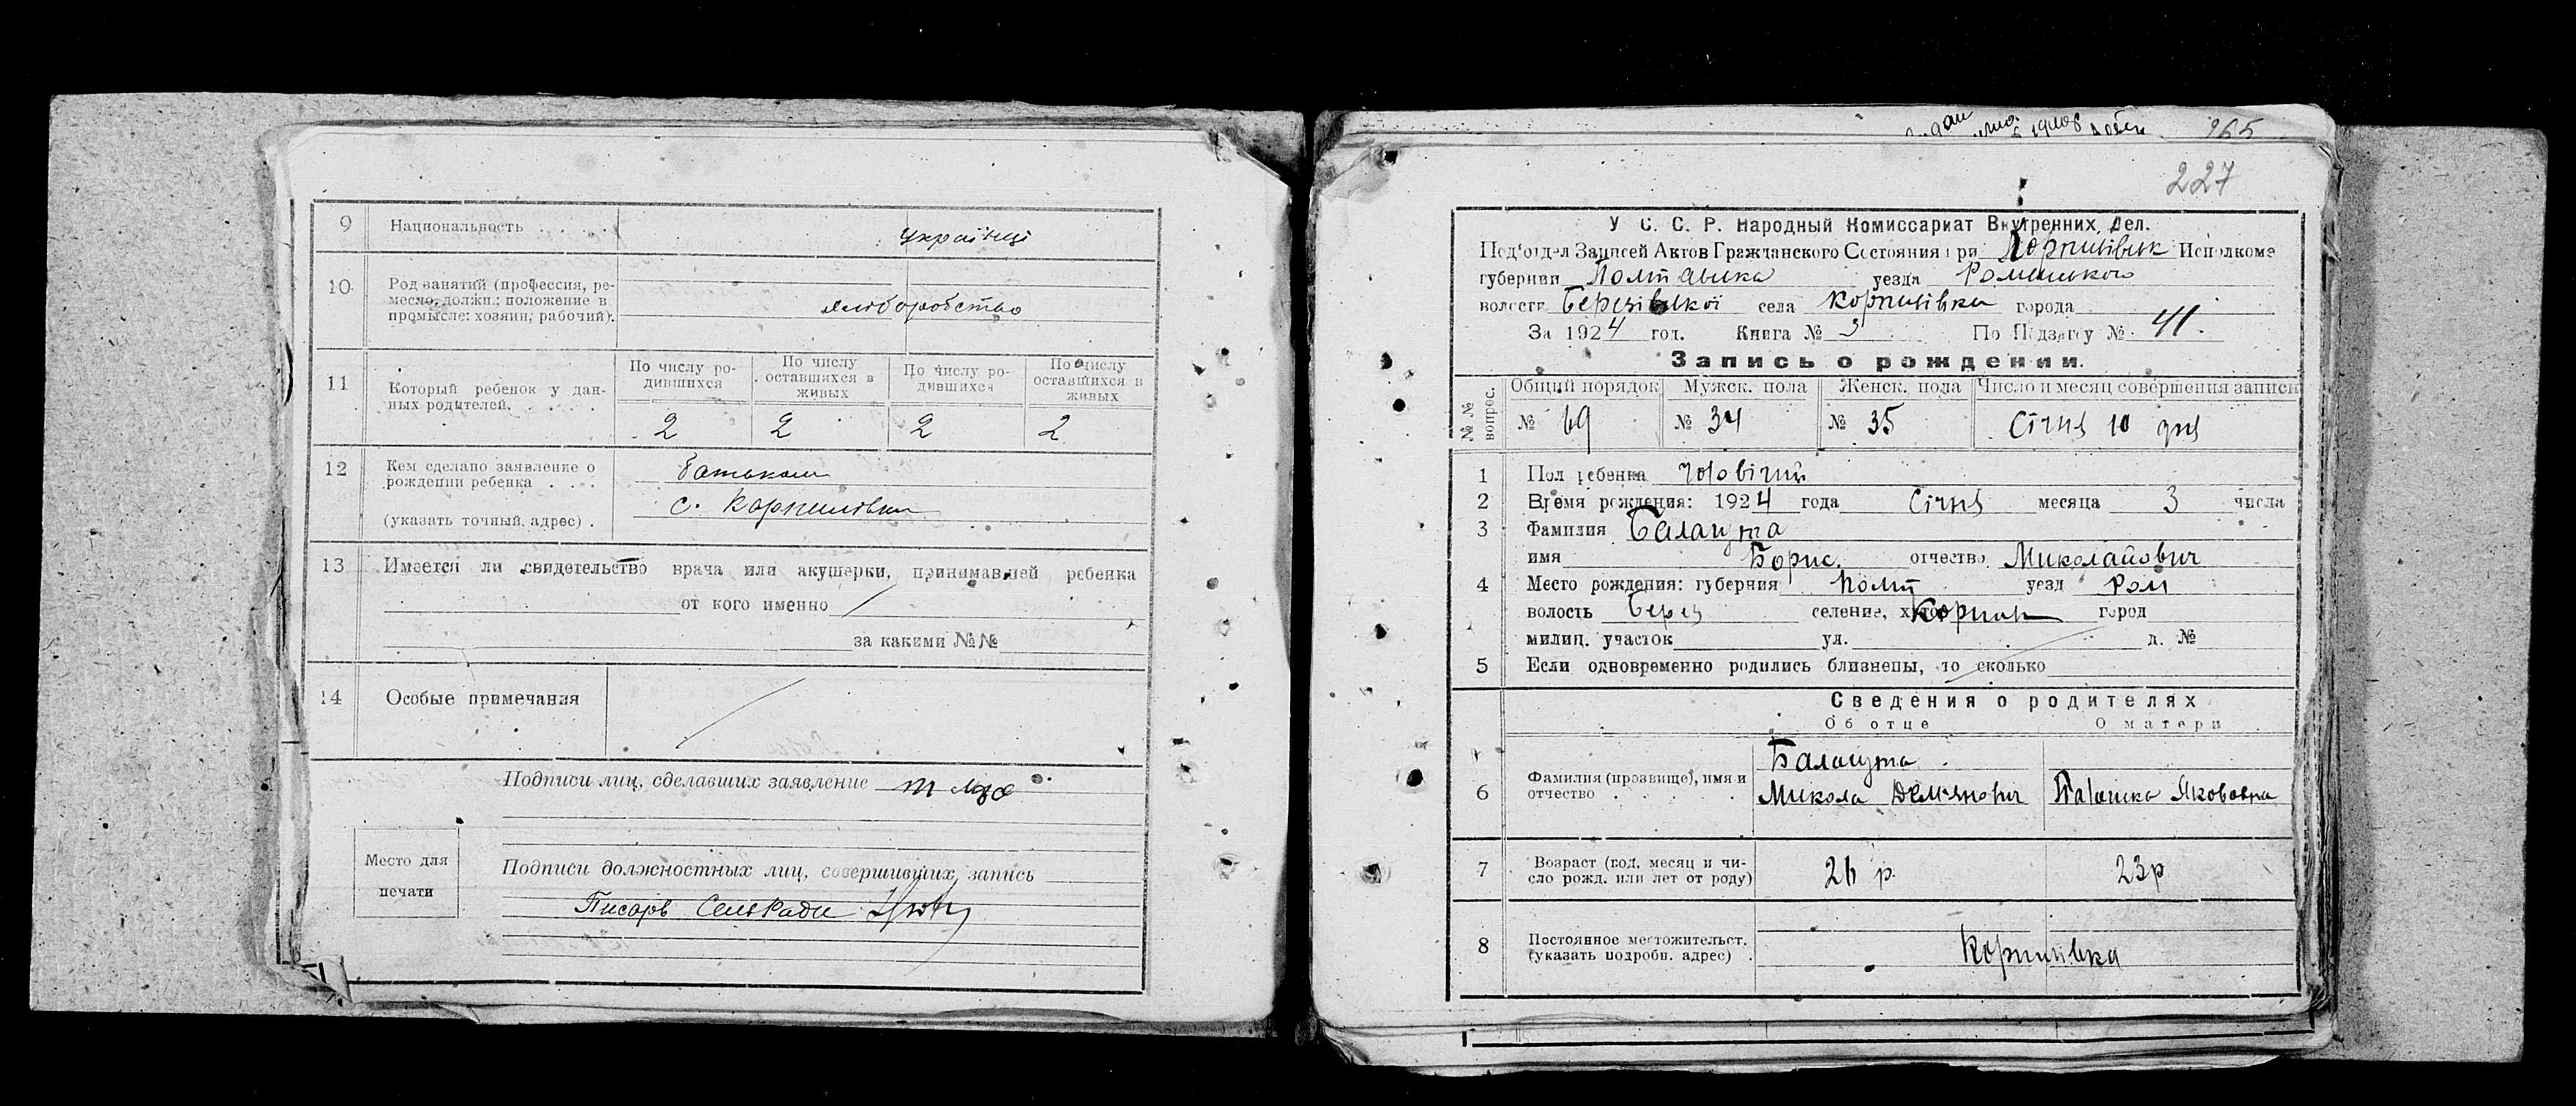 9 Национальность українці
10 Род занятий (профессия, ре-
месло, должн.; положение в
промысле: хозяин, рабочий). хліборобство
11 Который ребенок у дан-
ных родителей.
По числу ро-
дившихся
По числу
оставшихся в
живых
По числу ро-
дившихся
По числу
оставшихся в
живых
2 2 2 2
12 Кем сделано заявление о
рождении ребенка батьком
(указать точный адрес) с. Корпилівка
13 Имеется ли свидетельство врача или акушерки, принимавшей ребенка
от кого именно
за какими №№
14 Особые примечания
Подписи лиц, сделавших заявление
Место для
печати
Подписи должностных лиц, совершивших запись
Писарь СельРади
965
227
У. С. С. Р. Народный Комиссариат Внутренних Дел.
Под'отдел Записей Актов Гражданского Состояния при Исполкоме
губернии Полтавська уезда Роменського
волости села Корпилівки города
За 1924 год. Книга № 3 По Подзагу № 41.
Запись о рождении.
№№ вопрос.
Общий порядок Мужск. пола Женск. пола Число и месяц совершения записи
№ 69 № 34 № 35 Січня 10 дня
1 Пол ребенка Чоловічий
2 Время рождения: 1924 года Січня месяца 3 числа
3 Фамилия Балацута
имя Борис. отчество Миколайович
4 Место рождения: губерния Полт уезд Ром
волость Берез селение, хутор Корпил город
милиц. участок ул. д. №
5 Если одновременно родились близнецы, то сколько
Сведения о родителях
Об отце О матери
6 Фамилия (прозвище), имя и
отчество
Балацута
Микола Демянович Якововна
7 Возраст (год, месяц и чи-
сло рожд. или лет от роду) 26 р. 23 р
8 Постоянное местожительст.
(указать подробн. адрес) Корпилівка